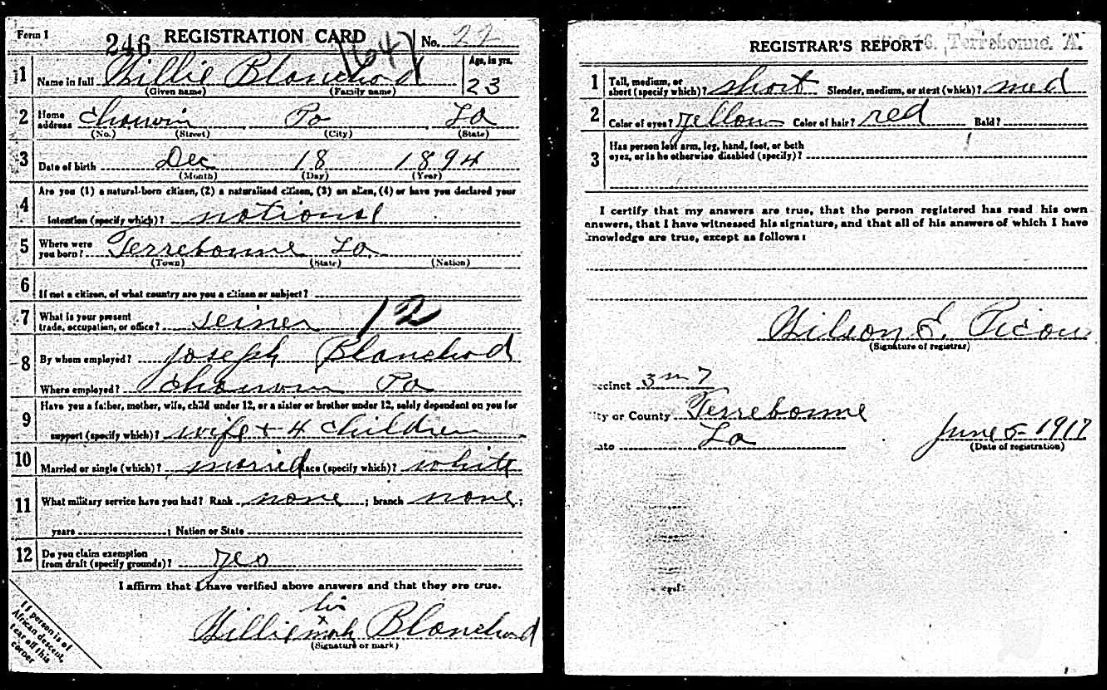 Form 1
246 REGISTRATION CARD No. 22
1 Name in full Willie Blanchard Age, in yrs. 23
(Given name) (Family name)
2 Home address Chauvin Po La
(No.) (Street) (City) (State)
3 Date of birth Dec 18 1894
(Month) (Day) (Year)
4 Are you (1) a natural-born citizen, (2) a naturalized citizen, (3) an alien, (4) or have you declared your
intention (specify which)? national
5 Where were you born? Terrebonne La
(Town) (State) (Nation)
6 If not a citizen, of what country are you a citizen or subject?
7 What is your present trade, occupation, or office? seiner 12
8 By whom employed? Joseph Blanchard
Where employed? Chauvin Po
9 Have you a father, mother, wife, child under 12, or a sister or brother under 12, solely dependent on you for
support (specify which)? wife + 4 children
10 Married or single (which)? married Race (specify which)? white
11 What military service have you had? Rank none ; branch none ;
years ; Nation or State
12 Do you claim exemption from draft (specify grounds)? yes
I affirm that I have verified above answers and that they are true.
his
Willie x mark Blanchard
(Signature or mark)
If person is of
African descent,
tear off this
corner
REGISTRAR'S REPORT Terrebonne. A.
1 Tall, medium, or short (specify which)? short Slender, medium, or stout (which)? med
2 Color of eyes? yellow Color of hair? red Bald?
3 Has person lost arm, leg, hand, foot, or both
eyes, or is he otherwise disabled (specify)?
I certify that my answers are true, that the person registered has read his own
answers, that I have witnessed his signature, and that all of his answers of which I have
knowledge are true, except as follows:
Wilson E. Picou
(Signature of registrar)
ecinct 3 7
ity or County Terrebonne
La June 5 1917
(Date of registration)